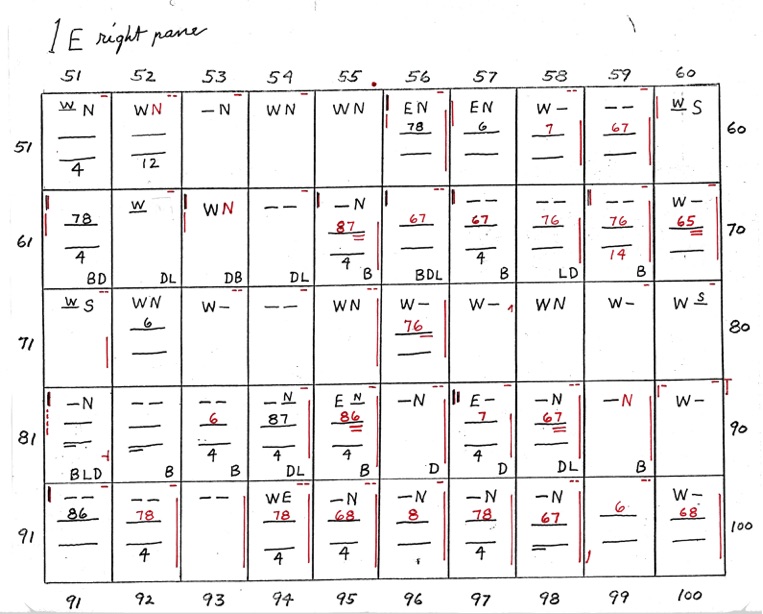 1 E right pane
51 52 53 54 55 56 57 58 59 60
W N WN — N WN WN EN EN W - - - W S
51 78 6 7 67 60
4 12
W WN - - - N - - - - W -
61 78 87 67 67 76 76 65 70
4 4 4 14
BD DL DB DL B BDL B LD B
W S WN W - - - WN W - W - WN W - W S
71 6 76 80
- N - - - - - N E N - N E - - N - N W -
81 6 87 86 7 67 90
4 4 4 4
BLD B B DL B D D DL B
- - - - - - WE - N - N - N - N W -
91 86 78 78 68 8 78 67 6 68 100
4 4 4 4
91 92 93 94 95 96 97 98 99 100